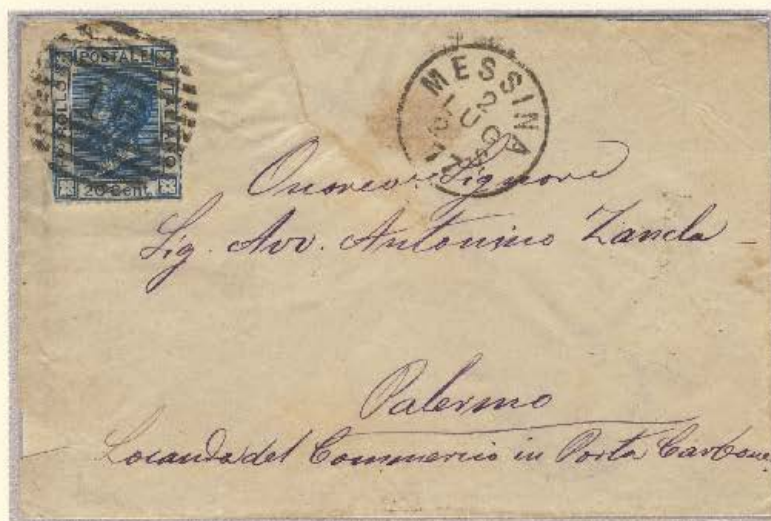 POSTALE
BOLLO
ITALIANO
20 Cent.
MESSINA
2
LUG
77
Onorevo: Signore
Sig. Avv. Antonino Zancla
Palermo
Locanda del Commercio in Porta Carbone